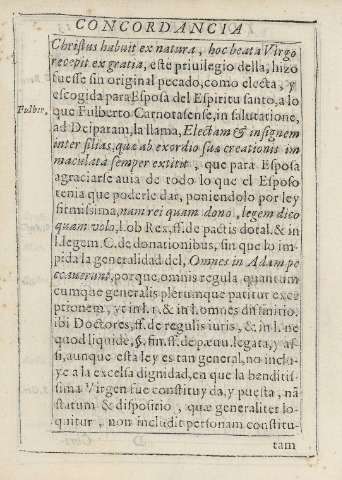 CONCORDANCIA
Christus habuit ex natura, hoc beata Virgo
recepit ex gratia, este priuilegio della, hizo
fuesse sin original pecado, como electa, y
escogida para Esposa del Espiritu santo, a lo
Fulber. que Fulberto Carnotasense, in salutatione,
ad Deiparam, la llama, Electam & insignem
inter filias, quæ ab exordio suæ creationis im
maculata semper extitit, que para Esposa
agraciarse auia de todo lo que el Esposo
tenia que poderle dar, poniendolo por ley
firmissima, nam rei quam dono, legem dico
quam volo, l. ob Res, ff. de pactis dotal. & in
l. legem. C. de donationibus, sin que lo im
pida la generalidad del, Omnes in Adam pe
ccauerunt, porque omnis regula quantum
cumque generalis plerumque patitur exce
ptionem, vt in l. 1. & in l. omnes diffinitio.
ibi Doctores, ff. de regulis iuris, & in l. ne
quod liquide, §. fin. ff. de pænu. legata, y as
si, aunque esta ley es tan general, no inclu-
ye a la excelsa dignidad, en que la benditis-
sima Virgen fue constituyda, y puesta, nã
statum & dispositio, quæ generaliter lo-
quitur, non includit personam constitu-
tam